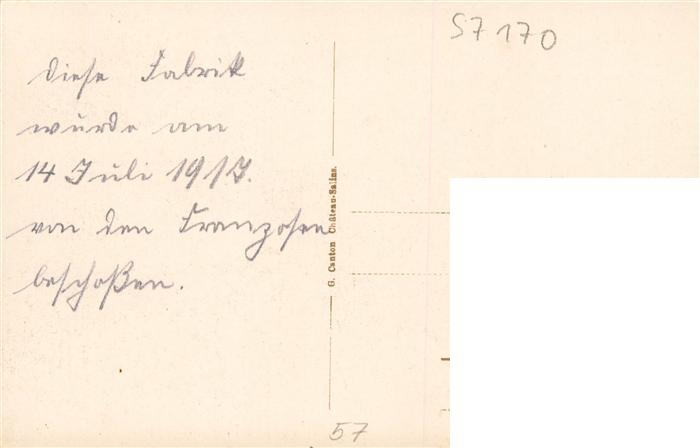 57170
Diese Fabrik
wurde am
14 Juli 1917.
von den Franzosen
beschoßen.
G. Canton Château-Salins.
57